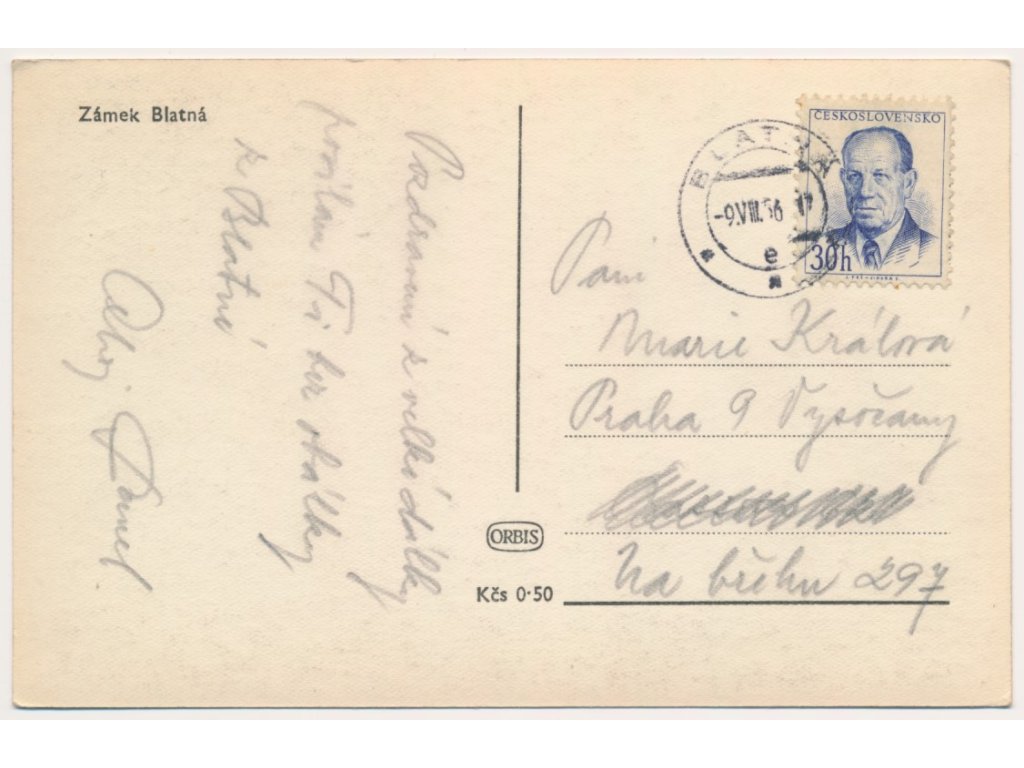 Zámek Blatná
Pozdravení z velké dálky
posílám Ti bez obálky
z Blatné
Ahoj
ČESKOSLOVENSKO
30h
BLATNÁ
-9.VIII.56 17
e
Paní
Marie Králová
Praha 9 Vysočany
Na břehu 297
ORBIS
Kčs 0·50